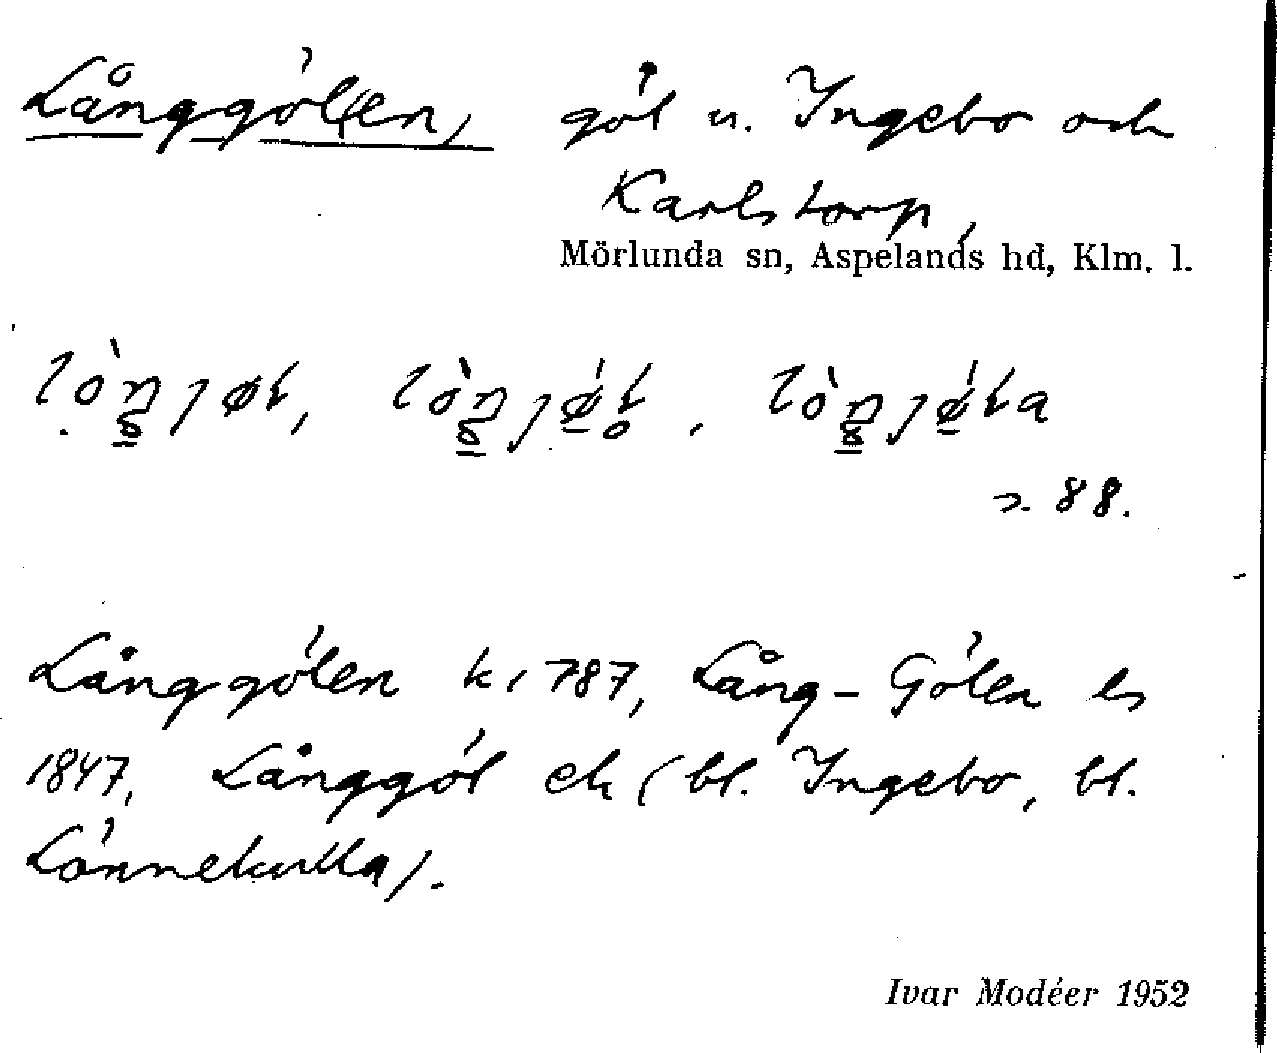 Långgöl(en), göl u. Ingebo och
Karlstorp,
Mörlunda sn, Aspelands hd, Klm. l.
88.
Långgölen k 1787, Lång-Gölen ls
1847, Långgöl ek (bl. Ingebo, bl.
Lönnekulla).
Ivar Modéer 1952